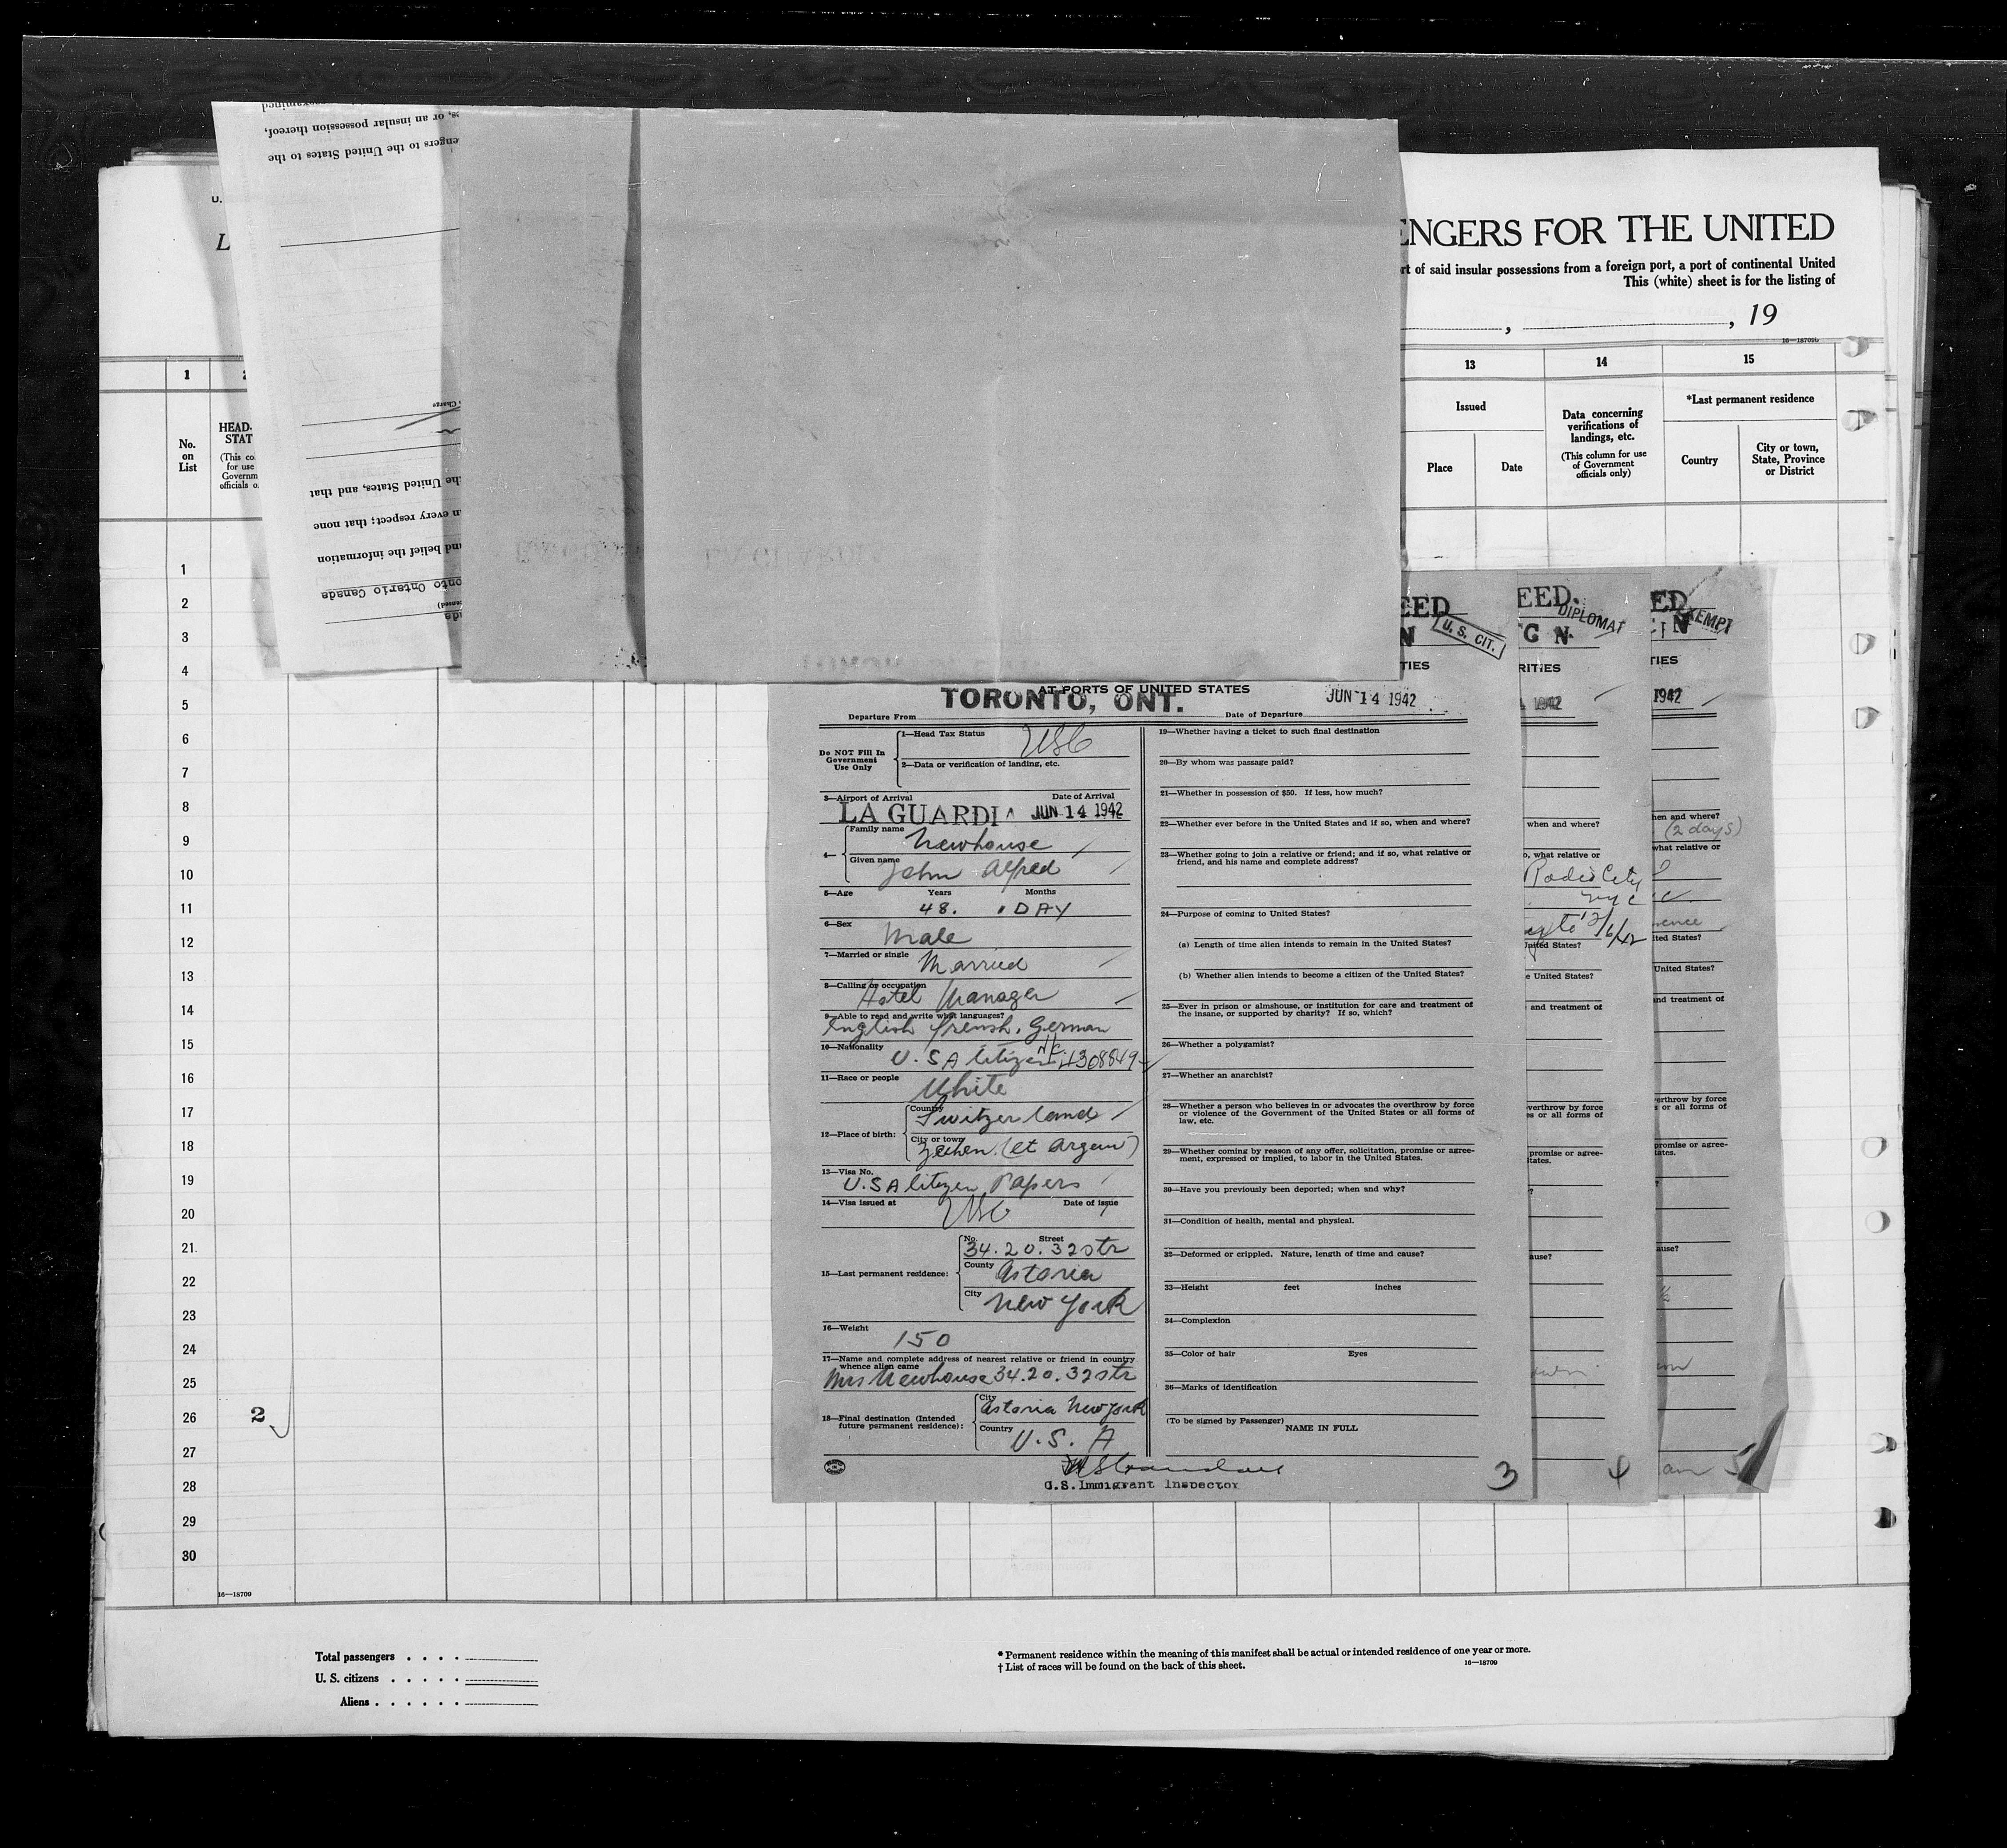 ENGERS FOR THE UNITED
rt of said insular possessions from a foreign port, a port of continental United
This (white) sheet is for the listing of
, , 19
16—18709b
U.
L
examined
s, or an insular possession thereof,
engers to the United States to the
Charge
he United States, and that
n every respect; that none
nd belief the information
onto Ontario Canada
da
LA GUARDI
1
13
14
15
No.
on
List
HEAD-
STAT
(This co
for use
Governm
officials o
Issued
Place
Date
Data concerning
verifications of
landings, etc.
(This column for use
of Government
officials only)
*Last permanent residence
Country
City or town,
State, Province
or District
1
2
3
4
5
6
7
8
9
10
11
12
13
14
15
16
17
18
19
20
21
22
23
24
25
26
27
28
29
30
2
16—18709
EED
N
U. S. CIT.
TIES
AT PORTS OF UNITED STATES
TORONTO, ONT.
JUN 14 1942
Departure From
Date of Departure
Do NOT Fill In
Government
Use Only
1—Head Tax Status
USC
2—Data or verification of landing, etc.
3—Airport of Arrival
Date of Arrival
LA GUARDIA JUN 14 1942
4—
Family name
Newhouse
Given name
John Alfred
5—Age
Years
Months
48. 1 DAY
6—Sex
Male
7—Married or single
Married
8—Calling or occupation
Hotel Manager
9—Able to read and write what languages?
English French. German
10—Nationality
U.S A Citizen
11—Race or people
White
12—Place of birth:
Country
Switzerland
City or town
13—Visa No.
U.S A Citizen Papers
14—Visa issued at
Date of issue
USC
15—Last permanent residence:
No.
Street
34.20.32 str
County
Astoria
City
New York
16—Weight
150
17—Name and complete address of nearest relative or friend in country
whence alien came
Mrs Newhouse 34.20.32 str
18—Final destination (Intended
future permanent residence):
City
Astoria New York
Country
U.S. A
U.S. Immigrant Inspector
19—Whether having a ticket to such final destination
20—By whom was passage paid?
21—Whether in possession of $50. If less, how much?
22—Whether ever before in the United States and if so, when and where?
23—Whether going to join a relative or friend; and if so, what relative or
friend, and his name and complete address?
24—Purpose of coming to United States?
(a) Length of time alien intends to remain in the United States?
(b) Whether alien intends to become a citizen of the United States?
25—Ever in prison or almshouse, or institution for care and treatment of
the insane, or supported by charity? If so, which?
26—Whether a polygamist?
27—Whether an anarchist?
28—Whether a person who believes in or advocates the overthrow by force
or violence of the Government of the United States or all forms of
law, etc.
29—Whether coming by reason of any offer, solicitation, promise or agree-
ment, expressed or implied, to labor in the United States.
30—Have you previously been deported; when and why?
31—Condition of health, mental and physical.
32—Deformed or crippled. Nature, length of time and cause?
33—Height
feet
inches
34—Complexion
35—Color of hair
Eyes
36—Marks of identification
(To be signed by Passenger)
NAME IN FULL
3
EED.
DIPLOMAT
G N
RITIES
1942
when and where?
o, what relative or
Radio City
NYC
United States?
e United States?
and treatment of
verthrow by force
es or all forms of
promise or agree-
tates.
?
ause?
4
ED
EXEMPT
N
TIES
1942
hen and where?
(2 days)
what relative or
ited States?
United States?
and treatment of
erthrow by force
s or all forms of
promise or agree-
ates.
?
ause?
5
Total passengers
U. S. citizens
Aliens
* Permanent residence within the meaning of this manifest shall be actual or intended residence of one year or more.
† List of races will be found on the back of this sheet.
16—18709